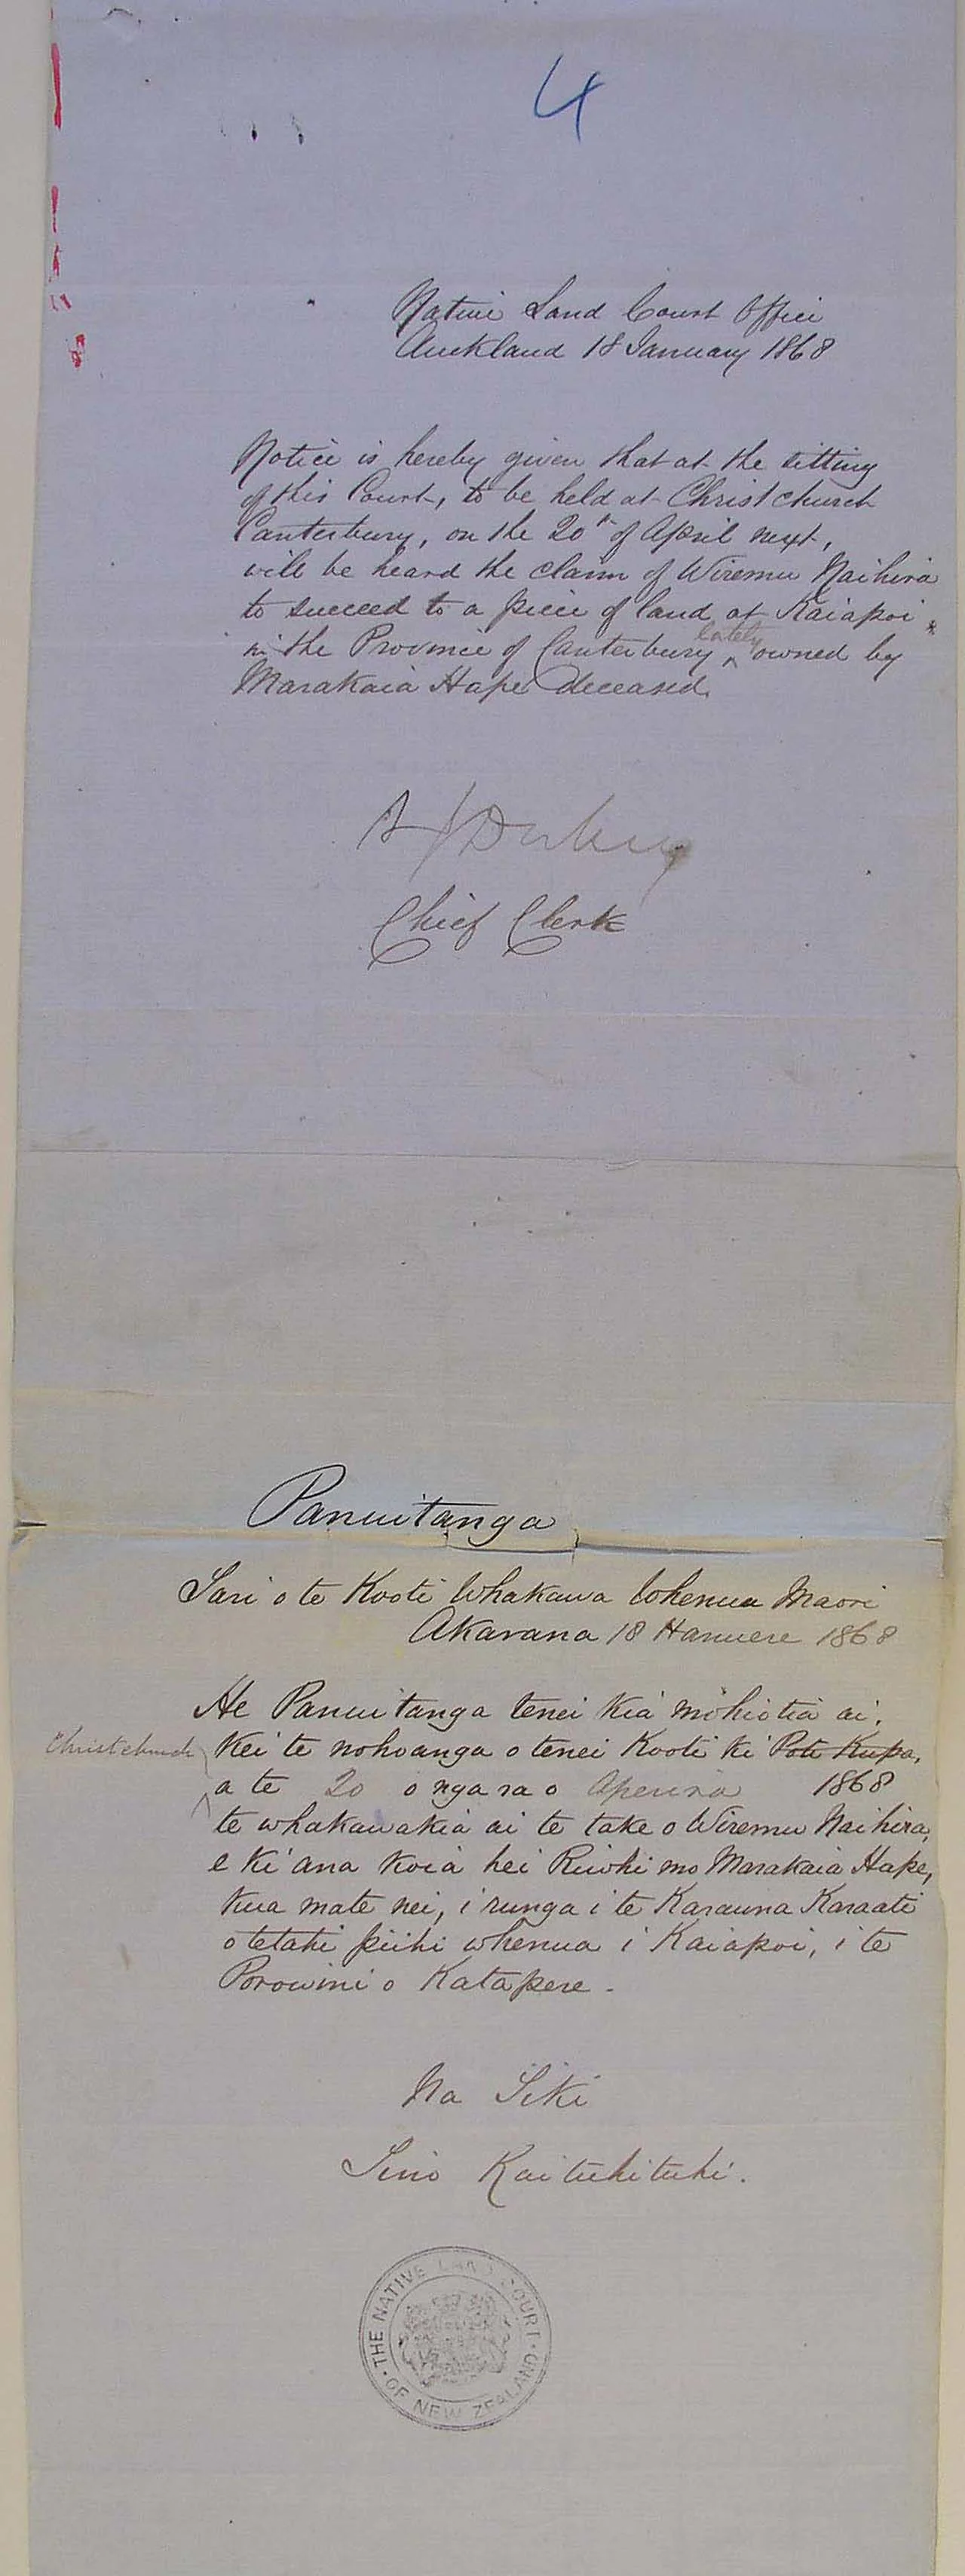 4
Native Land Court Office
Auckland 18 January 1868
Notice is hereby given that at the sitting
of this Court, to be held at Christchurch
Canterbury, on the 20th of April next,
will be heard the claim of Wiremu Naihira
to succeed to a piece of land at Kaiapoi
in the Province of Canterbury lately owned by
Marakaia Hape deceased.
Chief Clerk
Panuitanga
Tari o te Kooti Whakawa Whenua Maori
Akarana 18 Hanuere 1868
He Panuitanga tenei kia mohiotia ai.
Kei te nohoanga o tenei Kooti ki Poti Kupa,
Christchurch
a te 20 o nga ra o Aperira 1868
te whakawakia ai te take o Wiremu Naihira,
e ki ana koia hei Riiwhi mo Marakaia Hape,
kua mate nei, i runga i te Karauna Karaati
o tetahi piihi whenua i Kaiapoi, i te
Porowini o Katapere.
Na Tiki
Tino Kaituhituhi.
THE NATIVE LAND COURT
OF NEW ZEALAND